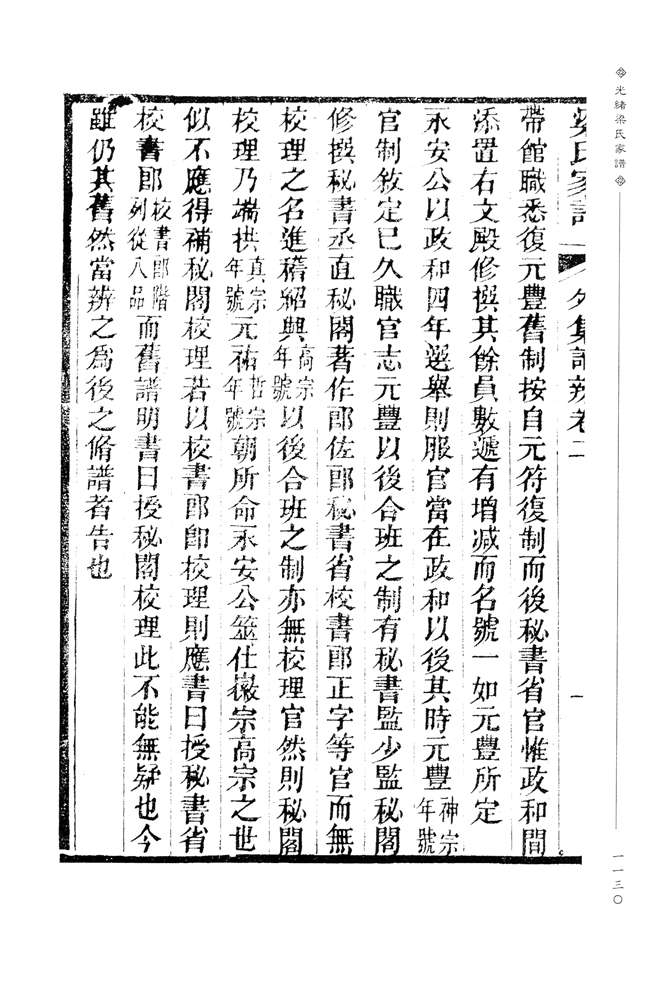 光緒梁氏家譜
一一三〇
梁氏家譜 外集譜辨卷二 一
帶館職悉復元豐舊制按自元符復制而後秘書省官惟政和間
添置右文殿修撰其餘員數遞有增减而名號一如元豐所定
永安公以政和四年選舉則服官當在政和以後其時元豐神宗年號
官制敘定已久職官志元豐以後合班之制有秘書監少監秘閣
修撰秘書丞直秘閣著作郎佐郎秘書省校書郎正字等官而無
校理之名進稽紹興高宗年號以後合班之制亦無校理官然則秘閣
校理乃端拱真宗年號元祐哲宗年號朝所命永安公筮仕徽宗高宗之世
似不應得補秘閣校理若以校書郎卽校理則應書曰授秘書省
校書郎校書郎階列從八品而舊譜明書曰授秘閣校理此不能無疑也今
雖仍其舊然當辨之爲後之脩譜者告也